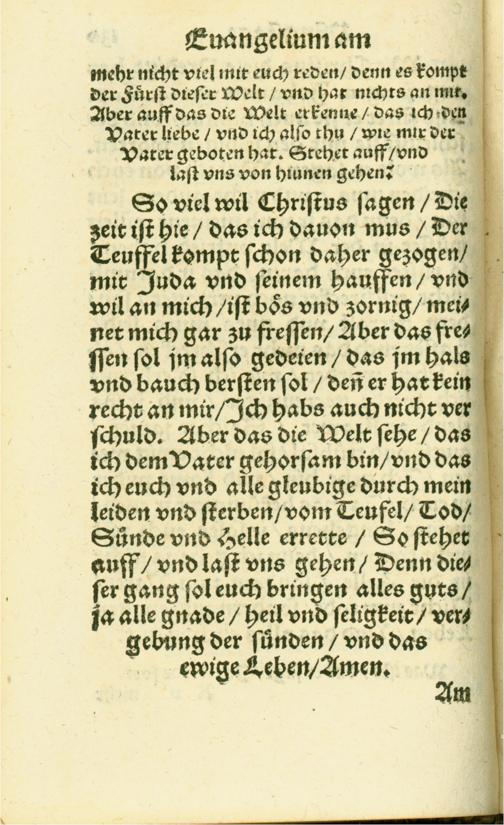 Euangelium am
mehr nicht viel mit euch reden/ denn es kompt
der Fürst dieser Welt / vnd hat nichts an mir.
Aber auff das die Welt erkenne / das ich den
Vater liebe / vnd ich also thu / wie mir der
Vater geboten hat. Stehet auff/vnd
last vns von hinnen gehen.
So viel wil Christus sagen / Die
zeit ist hie / das ich dauon mus / Der
Teuffel kompt schon daher gezogen/
mit Juda vnd seinem hauffen / vnd
wil an mich /ist bös vnd zornig/ mei⸗
net mich gar zu fressen/ Aber das fre⸗
ssen sol jm also gedeien / das jm hals
vnd bauch bersten sol / deñ er hat kein
recht an mir/Ich habs auch nicht ver
schuld. Aber das die Welt sehe / das
ich dem Vater gehorsam bin/vnd das
ich euch vnd alle gleubige durch mein
leiden vnd sterben/vom Teufel/ Tod/
Sünde vnd Helle errette / So stehet
auff / vnd last vns gehen / Denn die⸗
ser gang sol euch bringen alles guts /
ja alle gnade / heil vnd seligkeit / ver⸗
gebung der sünden / vnd das
ewige Leben/Amen.
Am